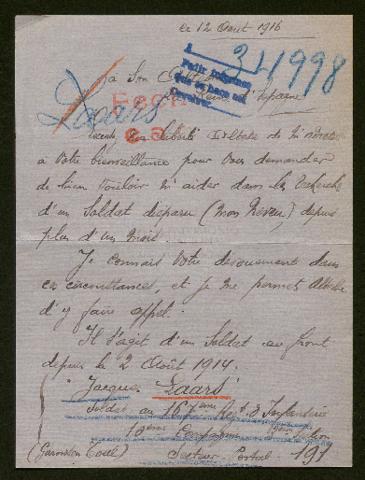 ce 12 Aout 1916
31998
à Son
d'Espagne
Zaars
liberté
à Votre bienveillance pour Vous demander
de bien Vouloir m'aider dans la recherche
d'un Soldat disparu (mon Neveu) depuis
plus d'un mois.
Je connais Votre dévouement dans
ces circonstances, et je me permets
d'y faire appel.
Il s'agit d'un Soldat au front
depuis le 2 Août 1914.
"Jacques Zaars"
Soldat au 167ème Regt d'Infanterie
10ème Compagnie
(Garnison Toul) Secteur Postal 191